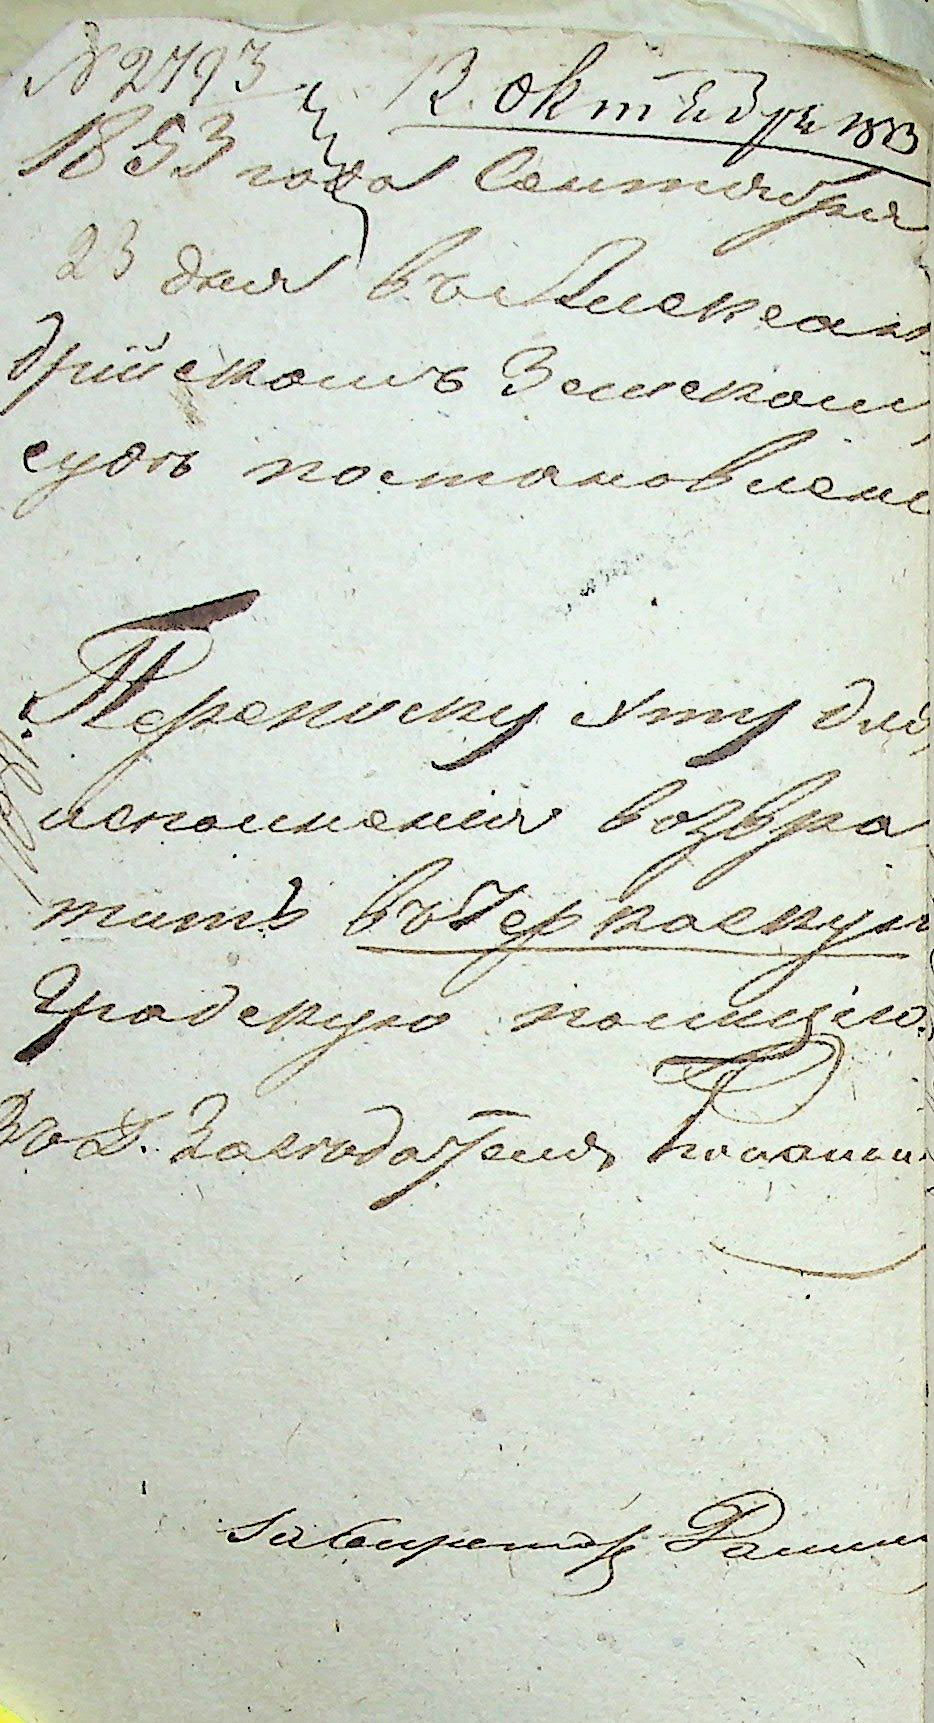 № 2793 12. Октября 1853
1853 года Сентября
23 дня въ Алексан
дрійскомъ Земском
судѣ постановлено
Переписку эту для
исполненія возвра
тить въ Черкаскую
Градскую полицію.
За Секретаря